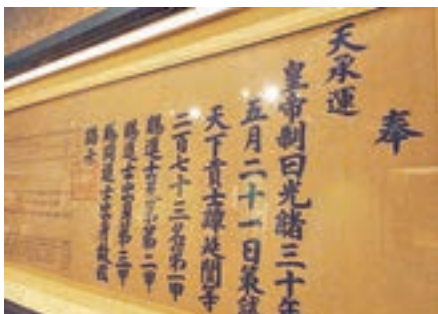 奉
天承運
皇帝制曰光緒三十年
五月二十一日策試
天下貢士譚延闓等
二百七十三名第一甲
賜進士及第第二甲
賜進士出身第三甲
賜同進士出身故茲
誥示